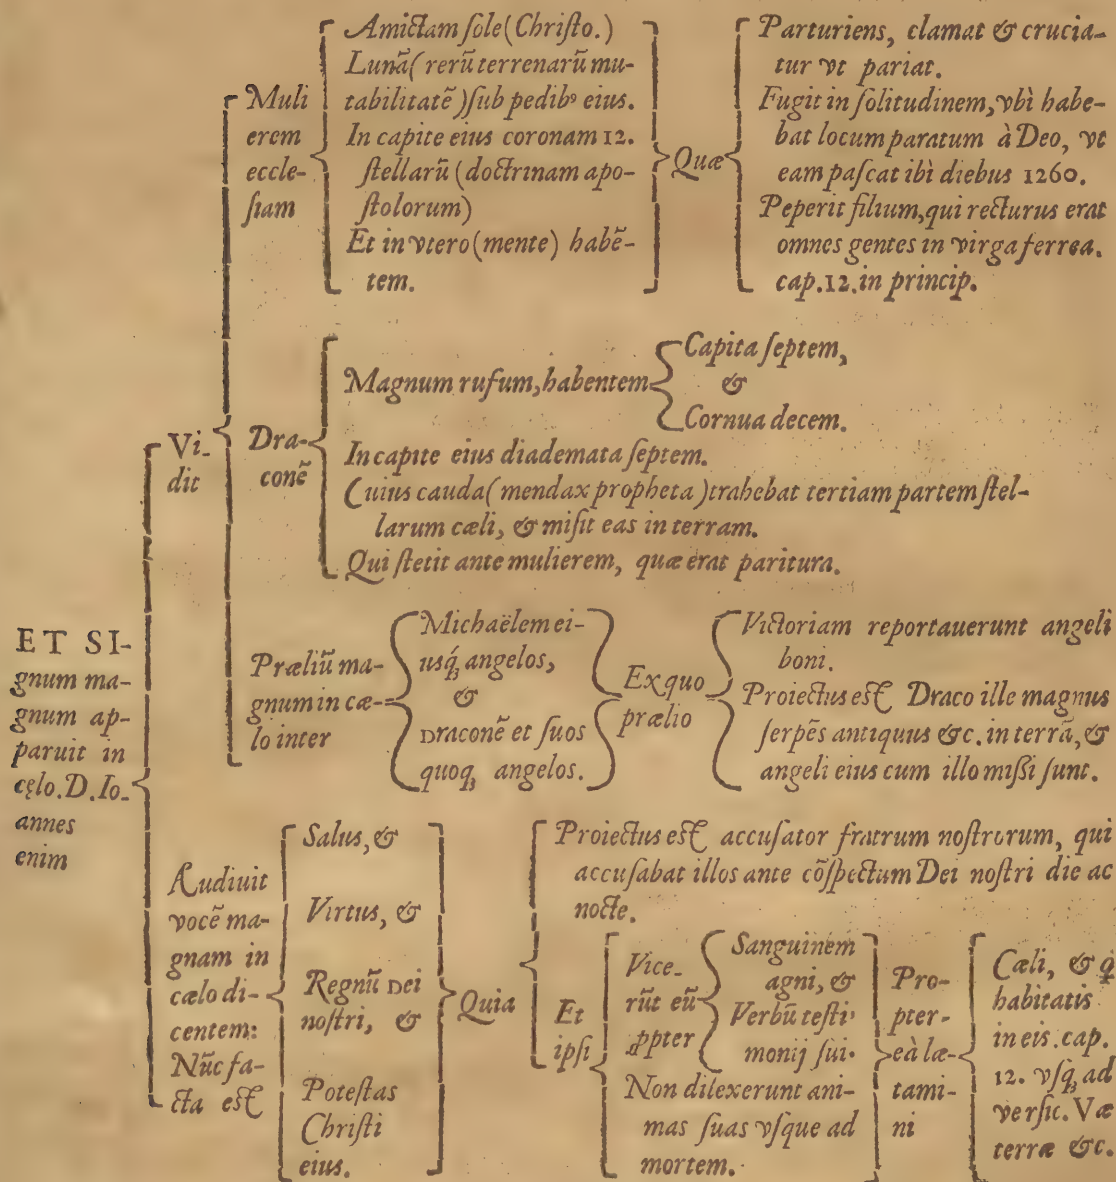 ET SI-
gnum ma-
gnum ap-
paruit in
cęlo. D. Io-
annes
enim
Vi-
dit
Muli
erem
eccle-
ſiam
Amictam ſole (Chriſto.)
Lunã (rerũ terrenarũ mu-
tabilitatẽ) ſub pedibꝰ eius.
In capite eius coronam 12.
ſtellarũ (doctrinam apo-
ſtolorum)
Et in vtero (mente) habẽ-
tem.
Quæ
Parturiens, clamat & crucia-
tur vt pariat.
Fugit in ſolitudinem, vbì habe-
bat locum paratum à Deo, vt
eam paſcat ibì diebus 1260.
Peperit filium, qui recturus erat
omnes gentes in virga ferrea.
cap. 12. in princip.
Dra-
conẽ
Magnum rufum, habentem
Capita ſeptem,
&
Cornua decem.
In capite eius diademata ſeptem.
Cuius cauda (mendax propheta) trahebat tertiam partem ſtel-
larum cæli, & miſit eas in terram.
Qui ſtetit ante mulierem, quæ erat paritura.
Præliũ ma-
gnum in cæ-
lo inter
Michaëlem ei-
uſq́ꝫ angelos,
&
Draconẽ et ſuos
quoqꝫ angelos.
Ex quo
prælio
Victoriam reportauerunt angeli
boni.
Proiectus eſt Draco ille magnus
ſerpẽs antiquus &c. in terrã, &
angeli eius cum illo miſſi ſunt.
Audiuit
vocẽ ma-
gnam in
cælo di-
centem:
Nũc fa-
cta eſt
Salus, &
Virtus, &
Regnũ Dei
noſtri, &
Poteſtas
Chriſti
eius.
Quia
Proiectus eſt accuſator fratrum noſtrorum, qui
accuſabat illos ante cõſpectum Dei noſtri die ac
nocte.
Et
ipſi
Vice-
rũt eũ
ꝓpter
Sanguinem
agni, &
Verbũ teſti-
monij ſui.
Non dilexerunt ani-
mas ſuas vſque ad
mortem.
Pro-
pter-
eà læ-
tami-
ni
Cæli, & ꝗ
habitatis
in eis. cap.
12. vſqꝫ ad
verſic. Væ
terræ &c.